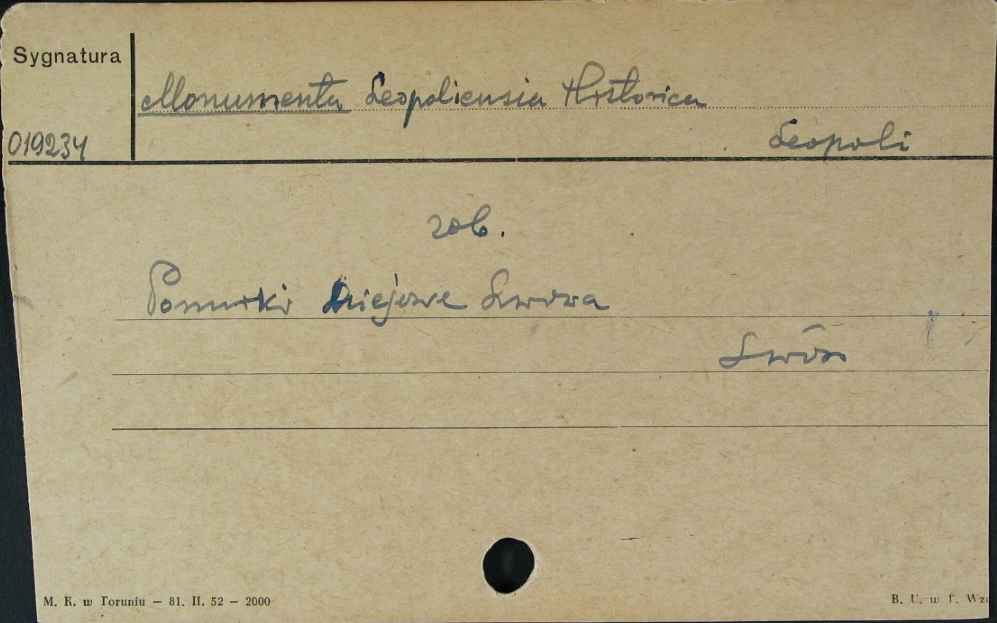 Sygnatura
Monumenta Leopoliensia Historica
Leopoli
019234
zob.
Pomniki dziejowe Lwowa
Lwów
M. K. w Toruniu — 81. II. 52 — 2000
B. U. w T. Wz